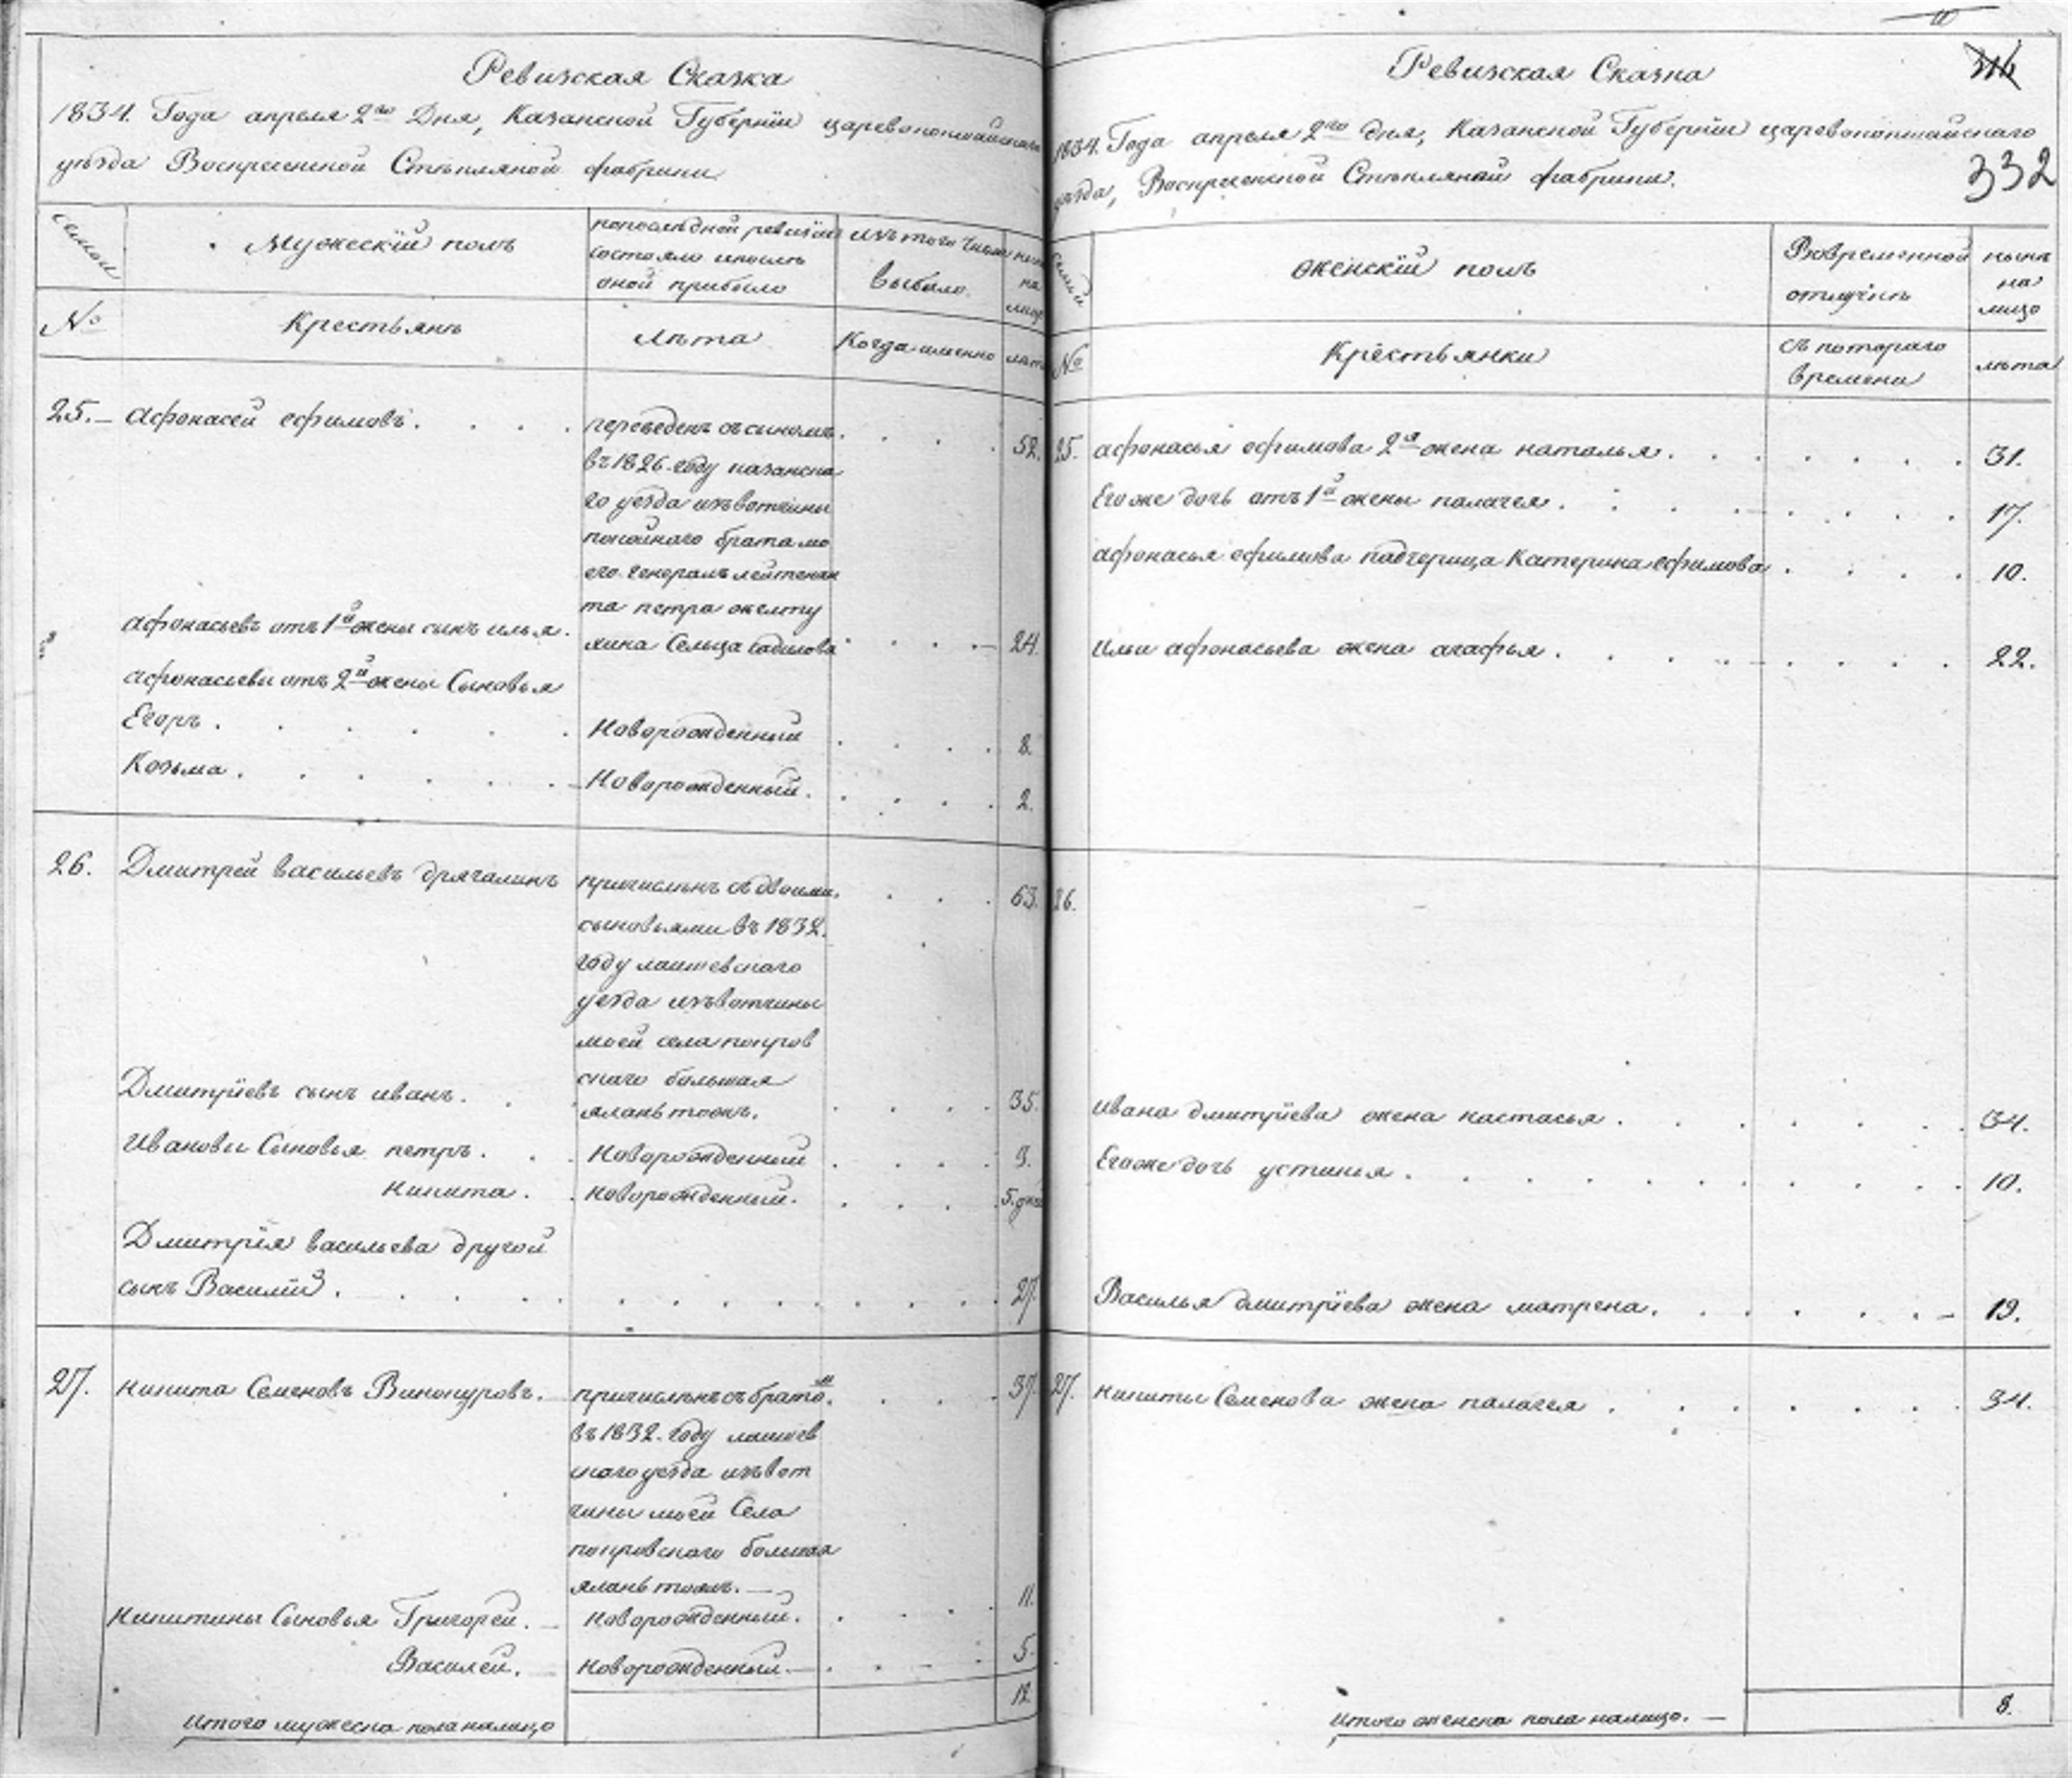 Ревизская Сказка
1834. Года апреля 2го Дня, Казанской Губернїи царевококшайскаго
уѣзда Воскресенской Стѣкляной фабрики
семьи
Мужескїй полъ
попослѣдной ревизїи
состояло ипослѣ
оной прибыло
изъ того числа
выбыло
ныне
на
лицо
№
Крестьянъ
Лѣта
Когда именно
лѣта
25. Афонасей ефимовъ. 52.
переведенъ съсыномъ
въ 1826. году казанска
го уезда изъвотчины
покойнаго брата мо
его генералъ лейтенан
та петра желту
хина Сельца кадилова
Афонасьевъ отъ 1й жены сынъ илья. 24.
Афонасьевы отъ 2й жены Сыновья
Егоръ. Новорожденный 8.
Козьма. Новорожденный. 2.
26. Дмитрей васильевъ дрягалинъ 63.
причисленъ сдвоими
сыновьями въ 1832.
году лаишевскаго
уезда изъвотчины
моей села покров
скаго большая
Дмитрїевъ сынъ иванъ. 35.
елань тожъ.
Ивановы Сыновья петръ. Новорожденный 9.
никита. новорожденный. 5. дней
Дмитрїя васильева другой
сынъ Василїй. 27.
27. никита Семеновъ Винокуровъ. 37.
причисленъ събратом
въ 1832. году лаишев
скаго уезда изъвот
чины моей Села
покровскаго большая
елань тожъ.
Никитины Сыновья Григорей. новорожденный. 11.
Василей. новорожденный. 5.
Итого мужеска пола налицо 12.
Ревизская Сказка
316
332
1834. Года апреля 2го дня, Казанской Губернїи царевококшайскаго
уѣзда, Воскресенской Стѣкляной фабрики.
семьи
женскїй полъ
Вовременной
отлучкѣ
нынѣ
на
лицо
№
Крестьянки
съ котораго
времени
лѣта
25. афонасья ефимова 2я жена наталья. 31.
Егоже дочь отъ 1й жены палагея. 17.
афонасья ефимова падчерица Катерина ефимова 10.
Ильи афонасьева жена агафья. 22.
26.
ивана дмитрїева жена настасья. 34.
Егоже дочь устинья. 10.
Василья дмитрїева жена матрена. 19.
27. никиты Семенова жена палагея 34.
Итого женска пола налицо. 8.